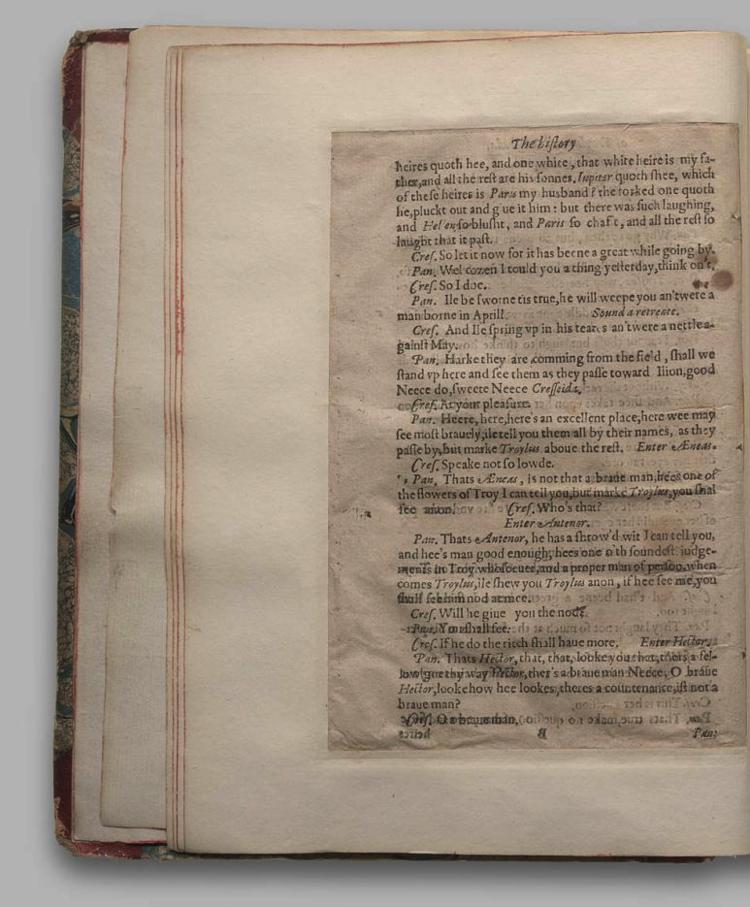 The history
heires quoth hee, and one white, that white heire is my fa-
ther,and all the rest are his sonnes, Iupiter quoth shee, which
of these heires is Paris my husband? the forked one quoth
he,pluckt out and giue it him: but there was such laughing,
and Helen so blusht, and Paris so chaft, and all the rest so
laught that it past.
Cres. So let it now for it has beene a great while going by.
Pan. Wel cozen I tould you a thing yesterday,think on't.
Cres. So I doe.
Pan. Ile be sworne tis true,he will weepe you an'twere a
man borne in Aprill. Sound a retreate.
Cres. And Ile spring vp in his teares an'twere a nettle a-
gainst May.
Pan. Harke they are comming from the field, shall we
stand vp here and see them as they passe toward Ilion,good
Neece do,sweete Neece Cresseida.
Cres. At your pleasure.
Pan. Heere, here,here's an excellent place,here wee may
see most brauely,ile tell you them all by their names, as they
passe by,but marke Troylus aboue the rest. Enter Æneas.
Cres. Speake not so lowde.
Pan. Thats Æneas, is not that a braue man,hees one of
the flowers of Troy I can tell you,but marke Troylus,you shal
see anon. Cres. Who's that?
Enter Antenor.
Pan. Thats Antenor, he has a shrow'd wit I can tell you,
and hee's man good enough, hees one o'th soundest iudge-
ments in Troy whosoeuer,and a proper man of person,when
comes Troylus,ile shew you Troylus anon, if hee see me,you
shall see him nod at mee.
Cres. Will he giue you the nod?
Pan. You shall see.
Cres. If he do the ritch shall haue more. Enter Hector.
Pan. Thats Hector, that, that, looke you that, thers a fel-
low,goe thy way Hector,ther's a braue man Neece, O braue
Hector,looke how hee lookes,theres a countenance,ist not a
braue man?
Cres. O a braue man.
Pan: